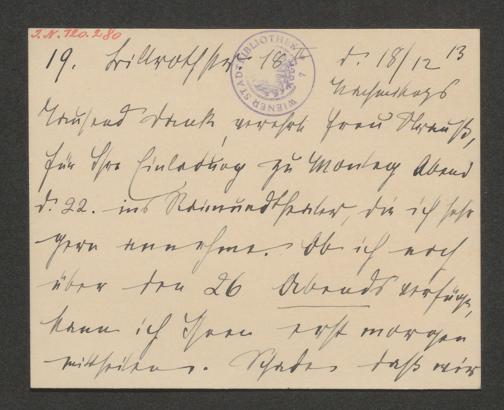 J.N. 120.280
19. Billrothstr. 18 d. 18/12 13
WIENER STADTBIBLIOTHEK
Nachmittags
Tausend Dank, verehrte Frau Strauß,
für Ihre Einladung zu Montag Abend
d. 22. ins Raimundtheater, die ich sehr
gern annehme. Ob ich noch
über den 26 Abends verfüge,
kann ich Ihnen erst morgen
mittheilen. Schade daß wir